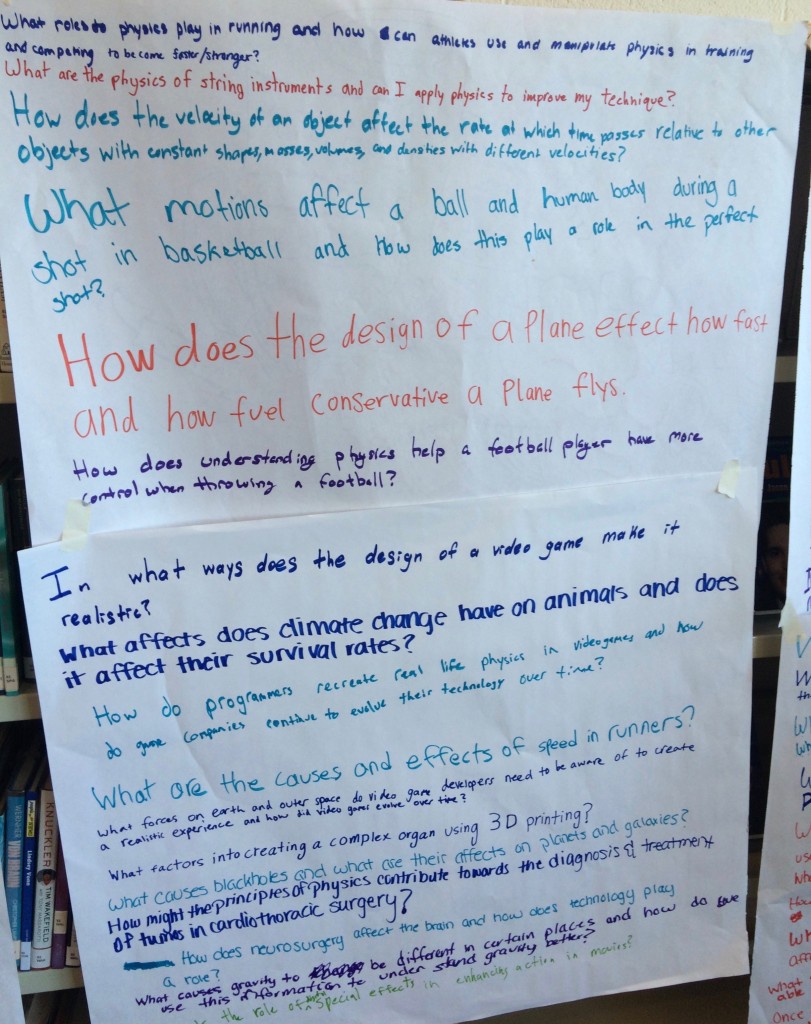 What roles do physics play in running and how can athletes use and manipulate physics in training
and competing to become faster/stronger?
What are the physics of string instruments and can I apply physics to improve my technique?
How does the velocity of an object affect the rate at which time passes relative to other
objects with constant shapes, masses, volumes, and densities with different velocities?
What motions affect a ball and human body during a
shot in basketball and How does this play a role in the perfect
shot?
How does the design of a Plane effect how fast
and how fuel Conservative a Plane flys.
How does understanding physics help a football player have more
control when throwing a football?
In what ways does the design of a video game make it
realistic?
What affects does climate change have on animals and does
it affect their survival rates?
How do programmers recreate real life physics in videogames and how
do game companies continue to evolve their technology over time?
What are the causes and effects of speed in runners?
What forces on earth and outer space do video game developers need to be aware of to create
a realistic experience and how did video games evolve over time?
What factors into creating a complex organ using 3D printing?
What causes blackholes and what are their affects on planets and galaxies?
How might the principles of physics contribute towards the diagnosis & treatment
of in cardiothoracic surgery?
How does neurosurgery affect the brain and how does technology play
a role?
What causes gravity to be different in certain places and how do
use this information to understand gravity better?
the role of special effects in enhancing action in movies?
KNUCKLER
TIM WAKEFIELD
Lindsey Vonn
VON BRAUN
what
able
Once